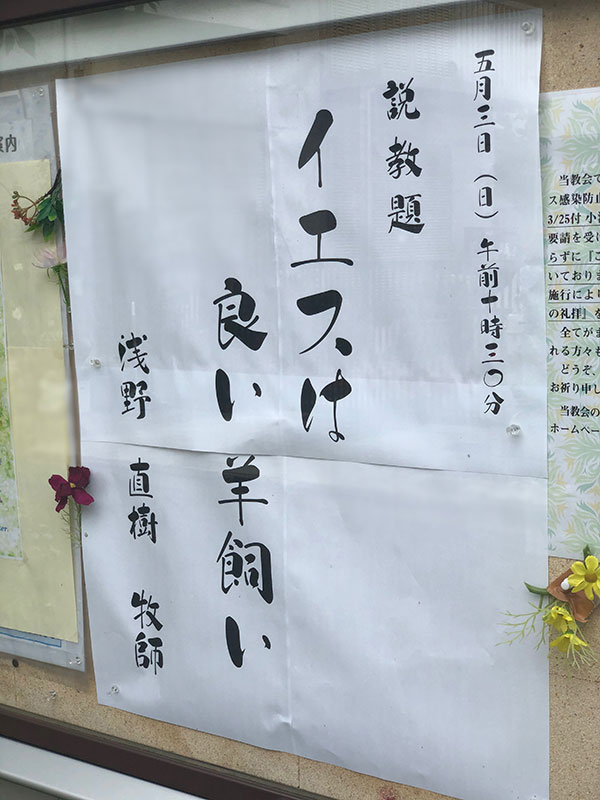 五月三日（日）午前十時三〇分
説教題
イエスは
良い羊飼い
浅野 直樹 牧師
当教会で
ス感染防止
3/25付 小
要請を受け
らずに『こ
いており
施行によ
の礼拝』を
全てがま
れる方々も
どうぞ、
お祈り申し
当教会の
ホームペー
案内